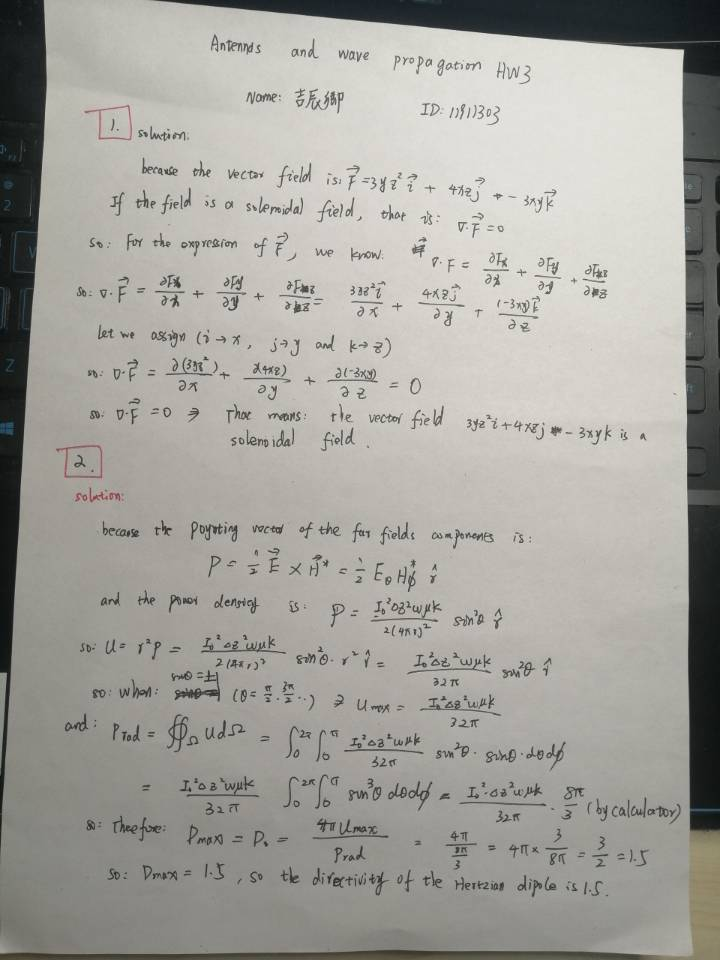 Antennas and wave propagation HW3
Name: 吉辰卿 ID: 11911303
1.
solution:
because the vector field is: F⃗ = 3yz² i⃗ + 4xz j⃗ - 3xy k⃗
If the field is a solenoidal field, that is: ∇·F⃗ = 0
so: For the expression of F⃗, we know: ∇·F = ∂Fx/∂x + ∂Fy/∂y + ∂Fz/∂z
so: ∇·F⃗ = ∂Fx/∂x + ∂Fy/∂y + ∂Fz/∂z = 3yz² i⃗/∂x + 4xz j⃗/∂y + (-3xy) k⃗/∂z
Let we assign (i→x, j→y and k→z)
so: ∇·F⃗ = ∂(3yz²)/∂x + ∂(4xz)/∂y + ∂(-3xy)/∂z = 0
so: ∇·F⃗ = 0 ⇒ That means: the vector field 3yz²i + 4xzj - 3xyk is a
solenoidal field.
2.
solution:
because the Poynting vector of the far fields components is:
P = ½ E⃗ × H⃗* = ½ Eθ Hφ* r̂
and the power density is: P = I₀²Δz²ωμk/2(4πr)² sin²θ r̂
so: U = r²P = I₀²Δz²ωμk/2(4πr)² sin²θ · r² r̂ = I₀²Δz²ωμk/32π sin²θ r̂
so: when: sinθ = ±1 (θ = π/2, 3π/2 ··) ⇒ Umax = I₀²Δz²ωμk/32π
and: Prad = ∯Ω U dΩ = ∫₀^2π ∫₀^π I₀²Δz²ωμk/32π sin²θ · sinθ · dθdφ
= I₀²Δz²ωμk/32π ∫₀^2π ∫₀^π sin³θ dθdφ = I₀²·Δz²ωμk/32π · 8π/3 (by calculator)
so: Therefore: Dmax = D₀ = 4πUmax/Prad = 4π/(8π/3) = 4π × 3/8π = 3/2 = 1.5
so: Dmax = 1.5, so the directivity of the Hertzian dipole is 1.5.